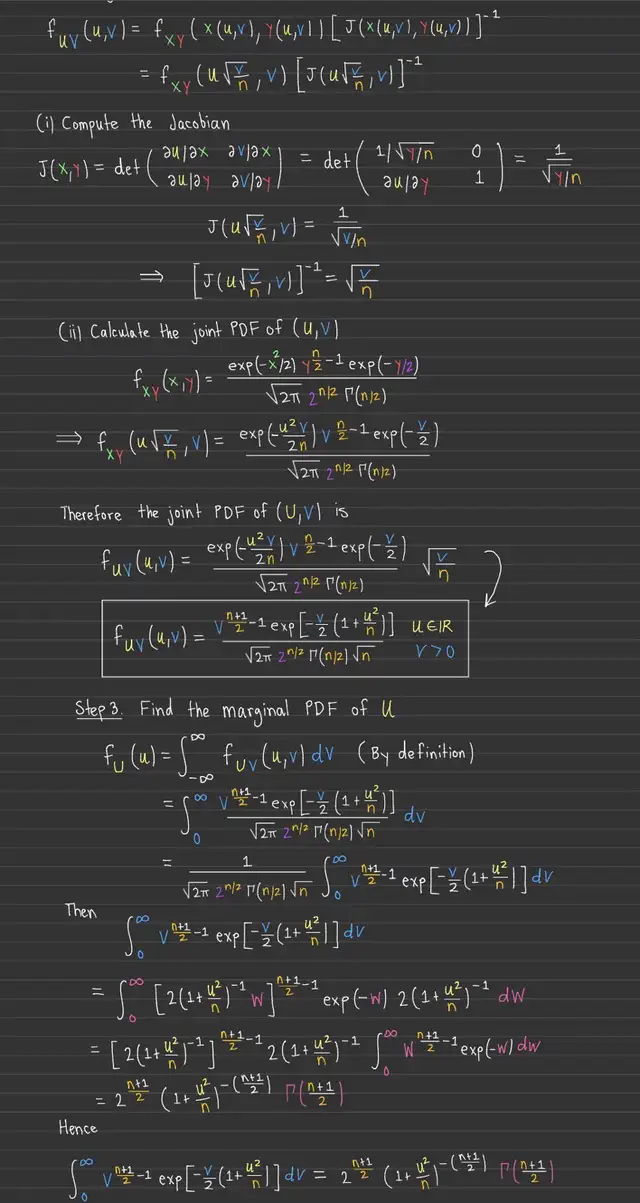 f_{UV}(u,v) = f_{XY}(x(u,v), y(u,v)) [J(x(u,v), y(u,v))]^{-1}
= f_{XY}(u√(v/n), v) [J(u√(v/n), v)]^{-1}
(i) Compute the Jacobian
J(x,y) = det(∂u/∂x ∂v/∂x ; ∂u/∂y ∂v/∂y) = det(1/√(y/n) 0 ; ∂u/∂y 1) = 1/√(y/n)
J(u√(v/n), v) = 1/√(v/n)
⟹ [J(u√(v/n), v)]^{-1} = √(v/n)
(ii) Calculate the joint PDF of (U,V)
f_{XY}(x,y) = exp(-x²/2) y^{n/2 -1} exp(-y/2) / √(2π) 2^{n/2} Γ(n/2)
⟹ f_{XY}(u√(v/n), v) = exp(-u²v/2n) v^{n/2 -1} exp(-v/2) / √(2π) 2^{n/2} Γ(n/2)
Therefore the joint PDF of (U,V) is
f_{UV}(u,v) = exp(-u²v/2n) v^{n/2 -1} exp(-v/2) / √(2π) 2^{n/2} Γ(n/2) √(v/n)
f_{UV}(u,v) = v^{(n+1)/2 -1} exp[-v/2 (1+u²/n)] / √(2π) 2^{n/2} Γ(n/2) √n u∈ℝ v>0
Step 3. Find the marginal PDF of U
f_U(u) = ∫_{-∞}^{∞} f_{UV}(u,v) dv (By definition)
= ∫_0^∞ v^{(n+1)/2 -1} exp[-v/2 (1+u²/n)] / √(2π) 2^{n/2} Γ(n/2) √n dv
= 1 / √(2π) 2^{n/2} Γ(n/2) √n ∫_0^∞ v^{(n+1)/2 -1} exp[-v/2 (1+u²/n)] dv
Then
∫_0^∞ v^{(n+1)/2 -1} exp[-v/2 (1+u²/n)] dv
= ∫_0^∞ [2(1+u²/n)^{-1} w]^{(n+1)/2 -1} exp(-w) 2(1+u²/n)^{-1} dw
= [2(1+u²/n)^{-1}]^{(n+1)/2 -1} 2(1+u²/n)^{-1} ∫_0^∞ w^{(n+1)/2 -1} exp(-w) dw
= 2^{(n+1)/2} (1+u²/n)^{-((n+1)/2)} Γ((n+1)/2)
Hence
∫_0^∞ v^{(n+1)/2 -1} exp[-v/2 (1+u²/n)] dv = 2^{(n+1)/2} (1+u²/n)^{-((n+1)/2)} Γ((n+1)/2)